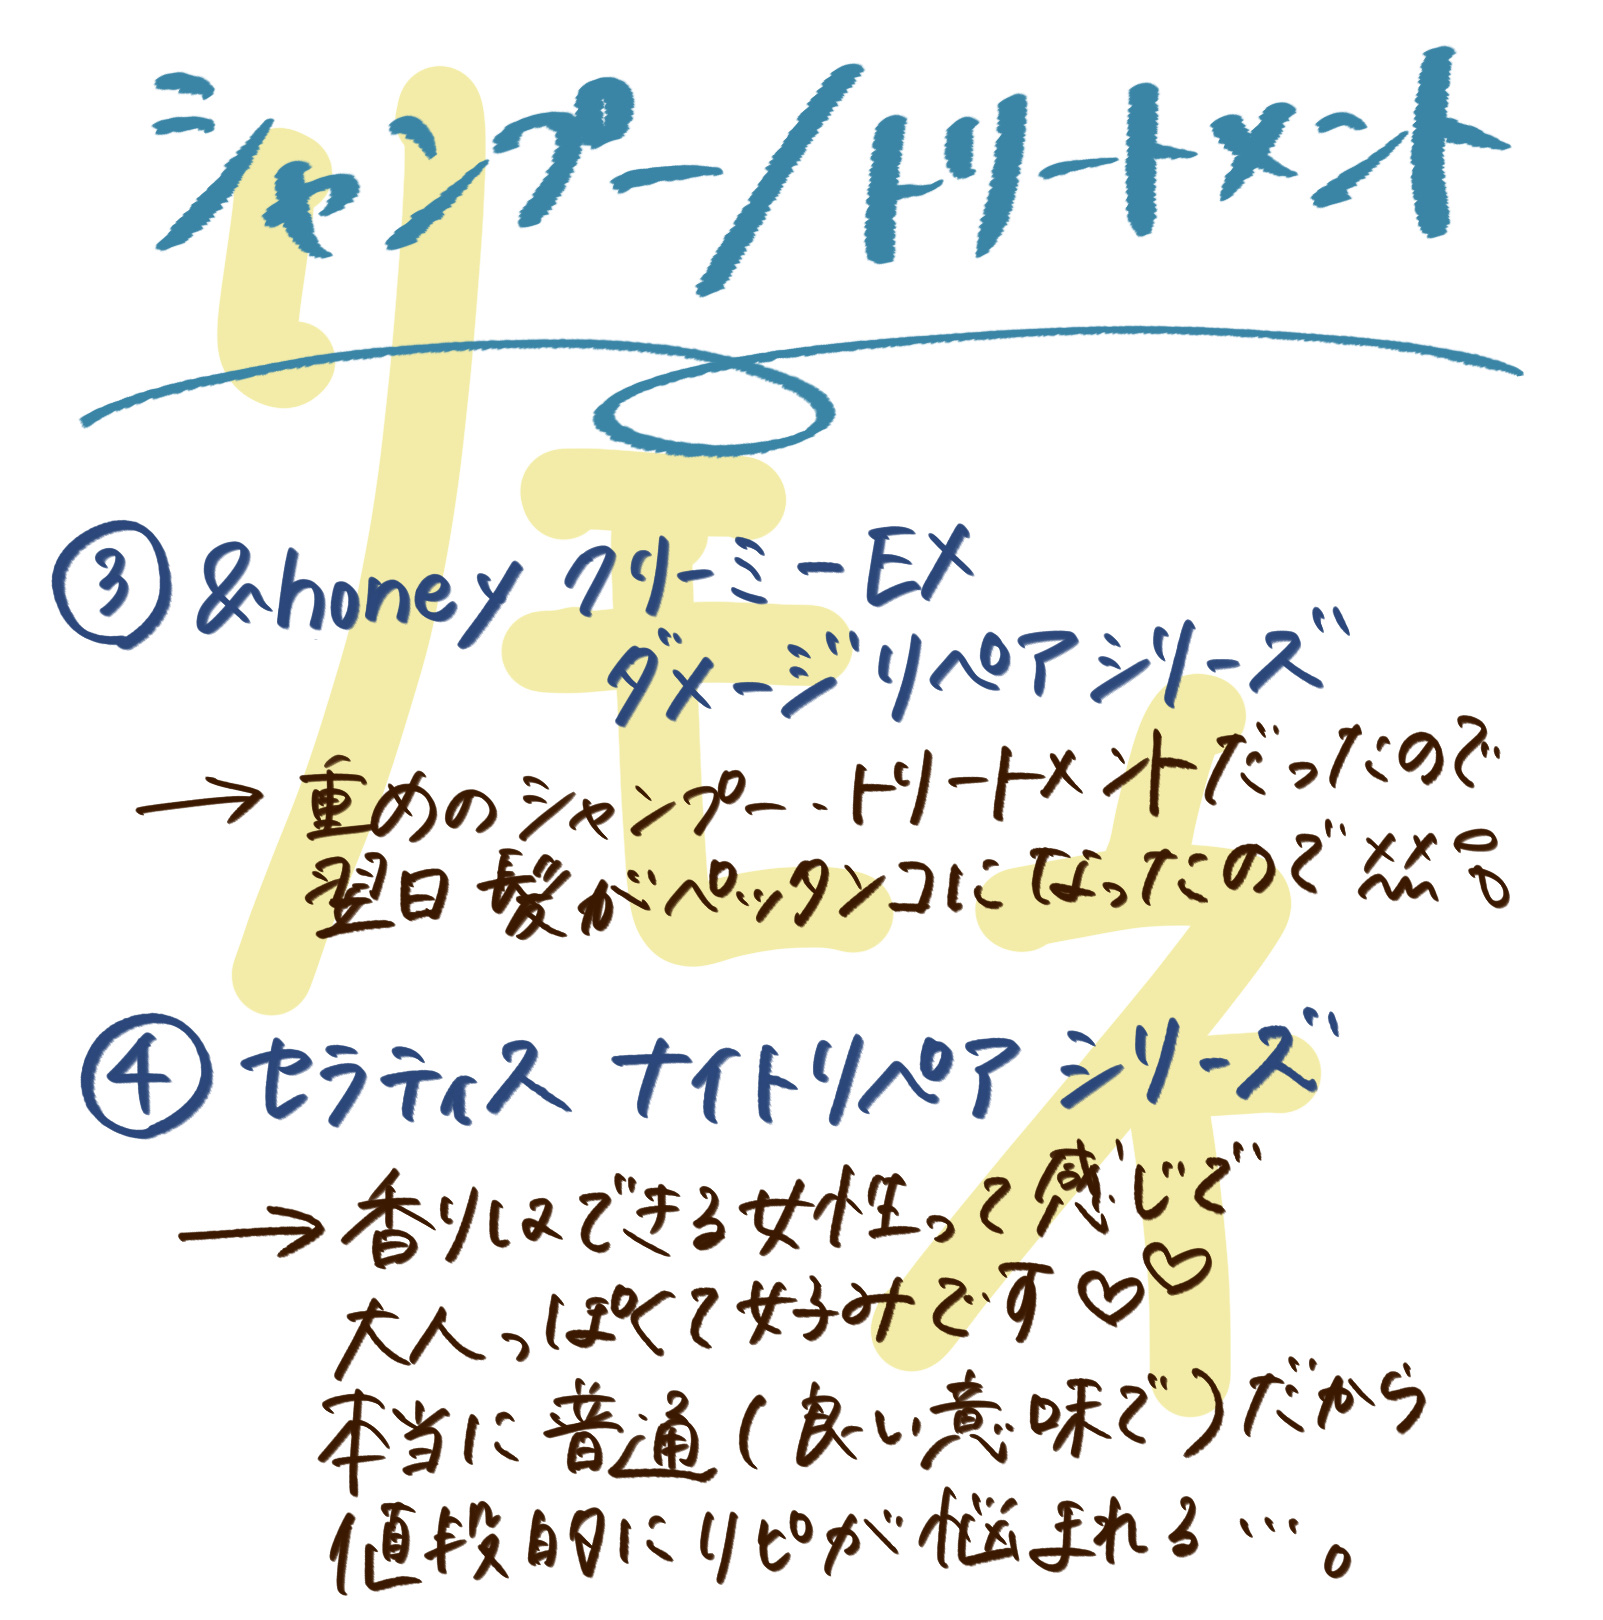 シャンプー/トリートメント
③ &honey クリーミーEX
ダメージリペアシリーズ
→ 重めのシャンプー・トリートメントだったので
翌日髪がペッタンコになったので
④ セラティス ナイトリペア シリーズ
→ 香りはできる女性って感じで
大人っぽくて好みです♡♡
本当に普通(良い意味で)だから
値段的にリピが悩まれる…。
リモオ